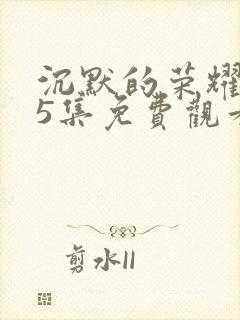 沉默的荣耀
5集免費觀
剪水II